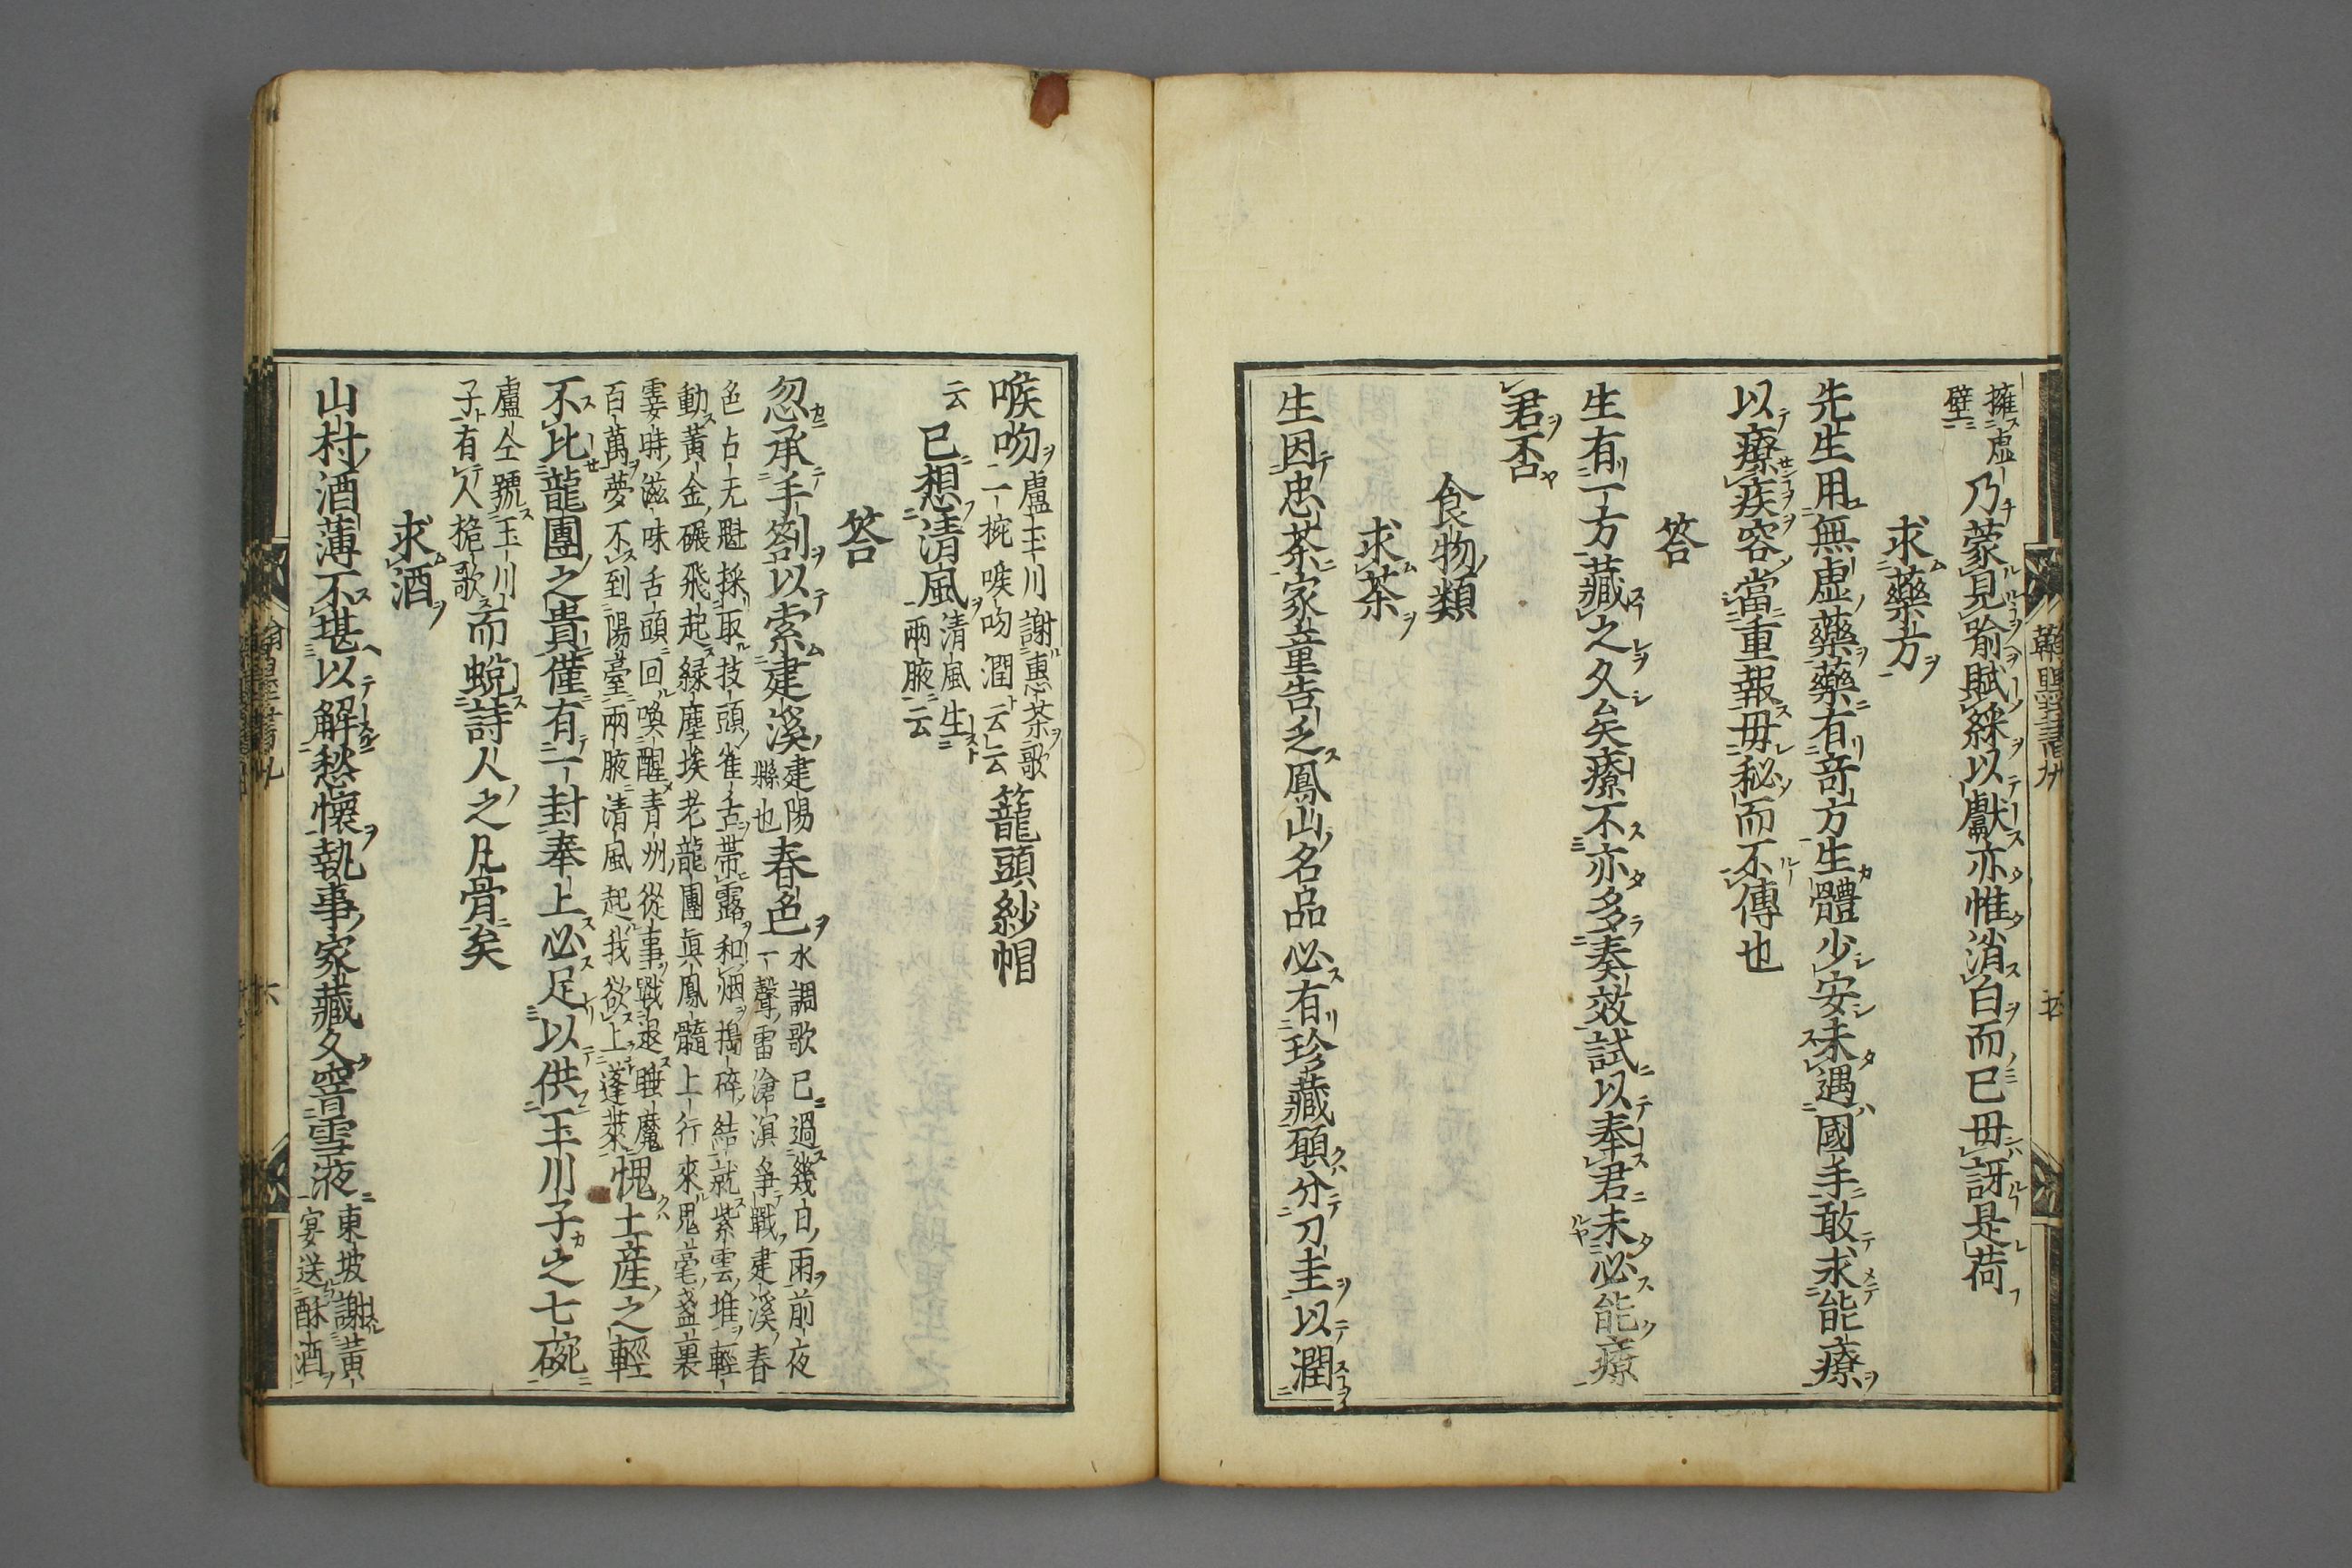 擁虚
壁 乃蒙見喻賦綵以獻亦惟消白而已毋訝是荷
求藥方
先生用無虚藥藥有竒方生體少安未遇國手敢求能療
以療疾容當重報毋秘而不傳也
答
生有一方藏之久矣療不亦多奏效試以奉君未必能療
君否
食物類
求茶
生因忠茶家童告乏鳳山名品必有珍藏願分刀圭以潤
喉吻 盧玉川謝惠茶歌
一椀喉吻潤云云 籠頭紗帽
云 已想清風 清風生
兩腋云
答
忽承手劄以索建溪 建陽
縣也 春色 水調歌已過幾日雨前夜
一聲雷滄溟爭戰建溪春
色占无魁採取技頭雀舌帶露和烟搗碎結就紫雲堆輕
動黃金碾飛起緑塵埃老龍團眞鳳髓上行來鬼毫盞裏
霎時滋味舌頭回喚醒青州從事戰退睡魔
百萬夢不到陽臺兩腋清風起我欲上蓬萊 愧土産之輕
不比龍團之貴僅有一封奉上必足以供玉川子之七碗
盧仝號玉川
子有人桅歌 而蛻詩人之凡骨矣
求酒
山村酒薄不堪以解愁懷執事家藏久窨雪液 東坡謝黄
宴送酥酒